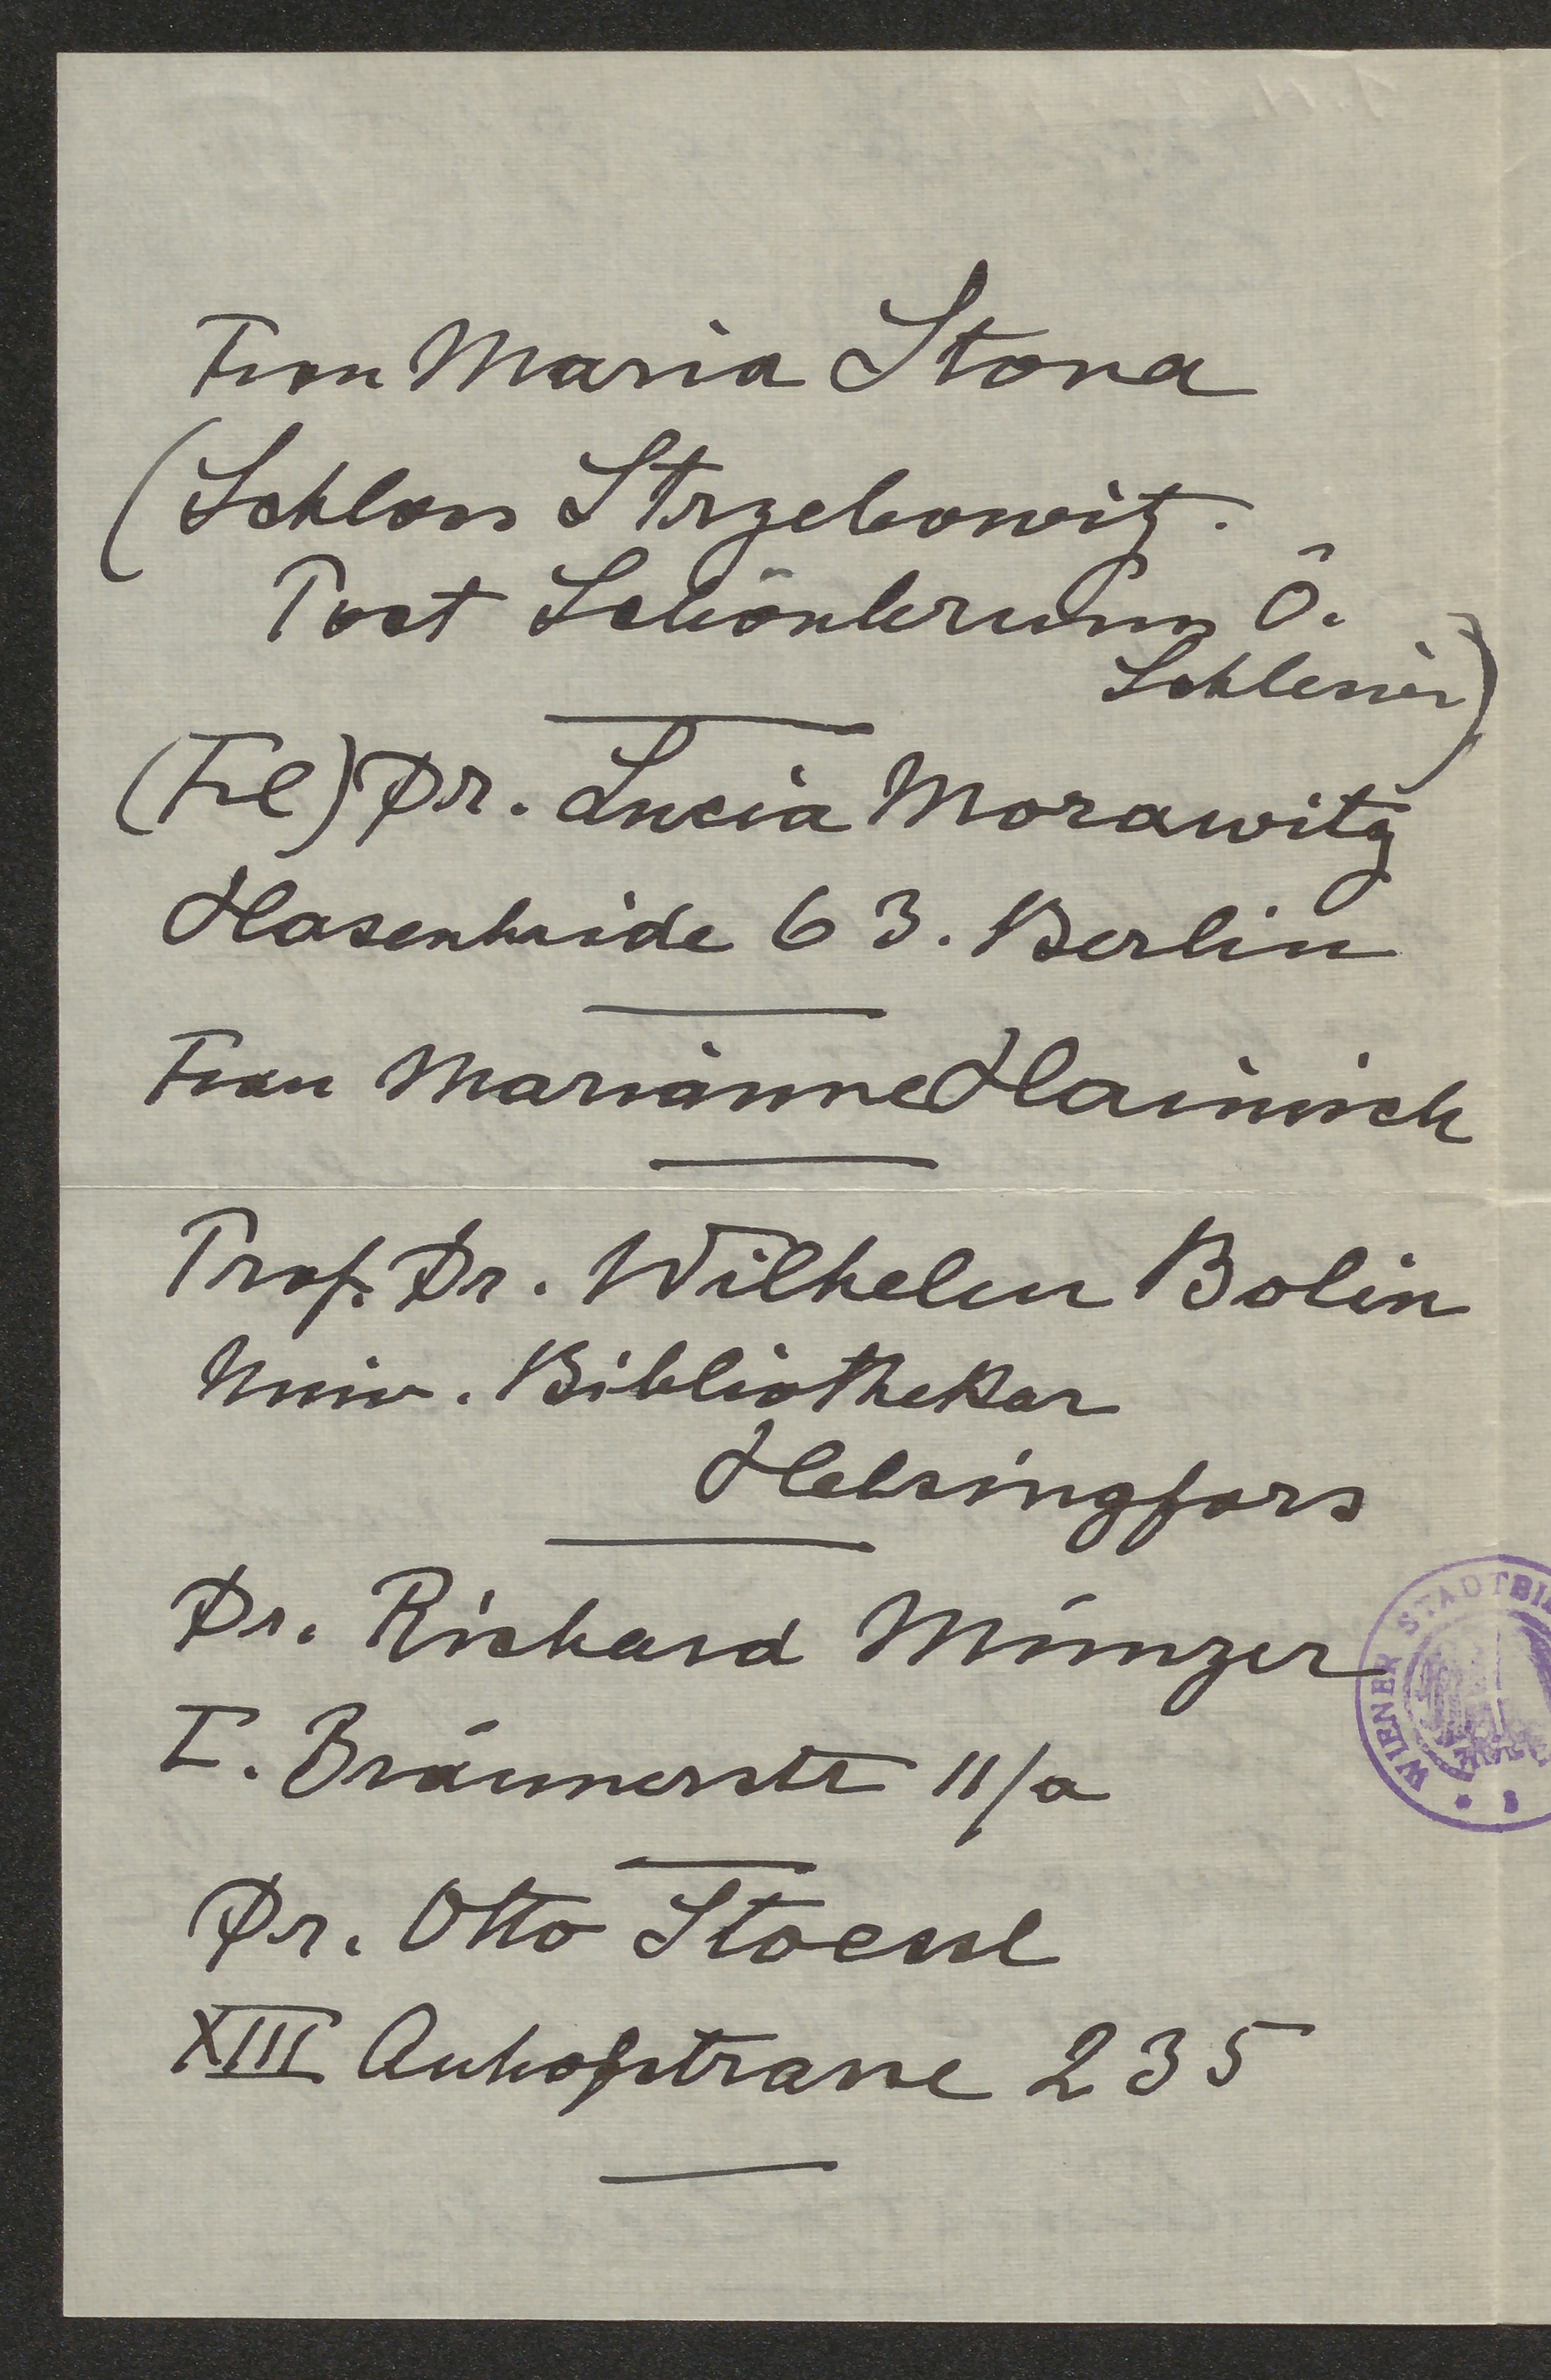 Frau Maria Stona
(Schloss Strzebowitz.
Post Schönbrunn Ö.
Schlesien)
(Frl) Dr. Lucia Morawitz
Hasenheide 63. Berlin
Frau Marianne Hainisch
Prof. Dr. Wilhelm Bolin
Univ. Bibliothekar
Helsingfors
Dr. Richard Münzer
I. Bräunerstr 11/a
Dr. Otto Stoessl
XIII Auhofstrasse 235
WIENER STADTBI